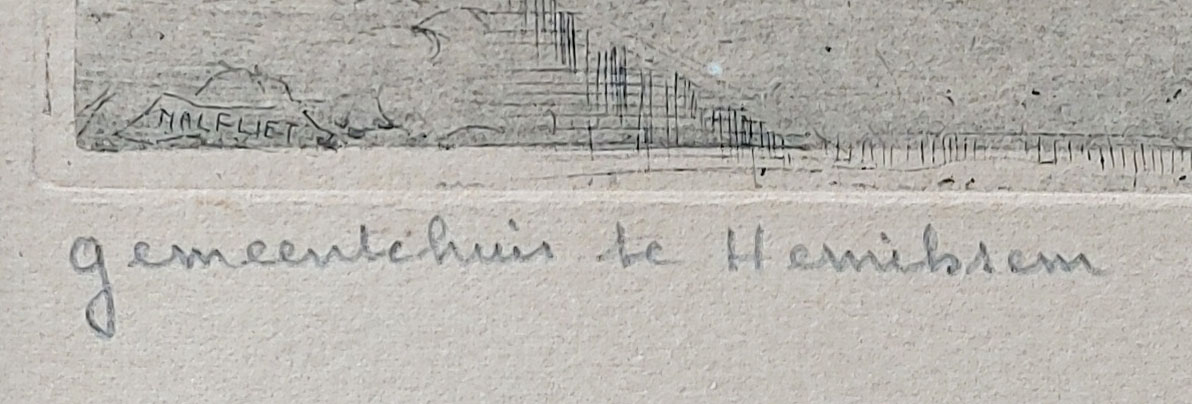 MALFLIET
gemeentehuis te Hemiksem